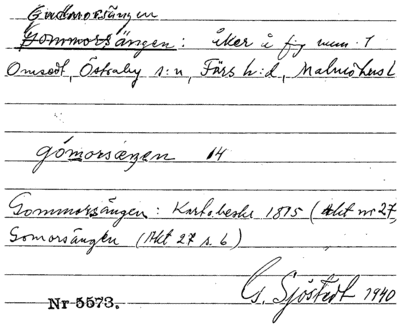 Gudmorsängen
Gommorsängen: åker å fig num. 1
Onsodt, Östraby s:n, Färs h:d, Malmöhus l
gómorsæŋen 14
Gommorsängen: Kartebeskr 1815 (Akt nr 27,
Gomorsängen (Akt 27 s. 6)
G. Sjöstedt 1940
Nr 5573.